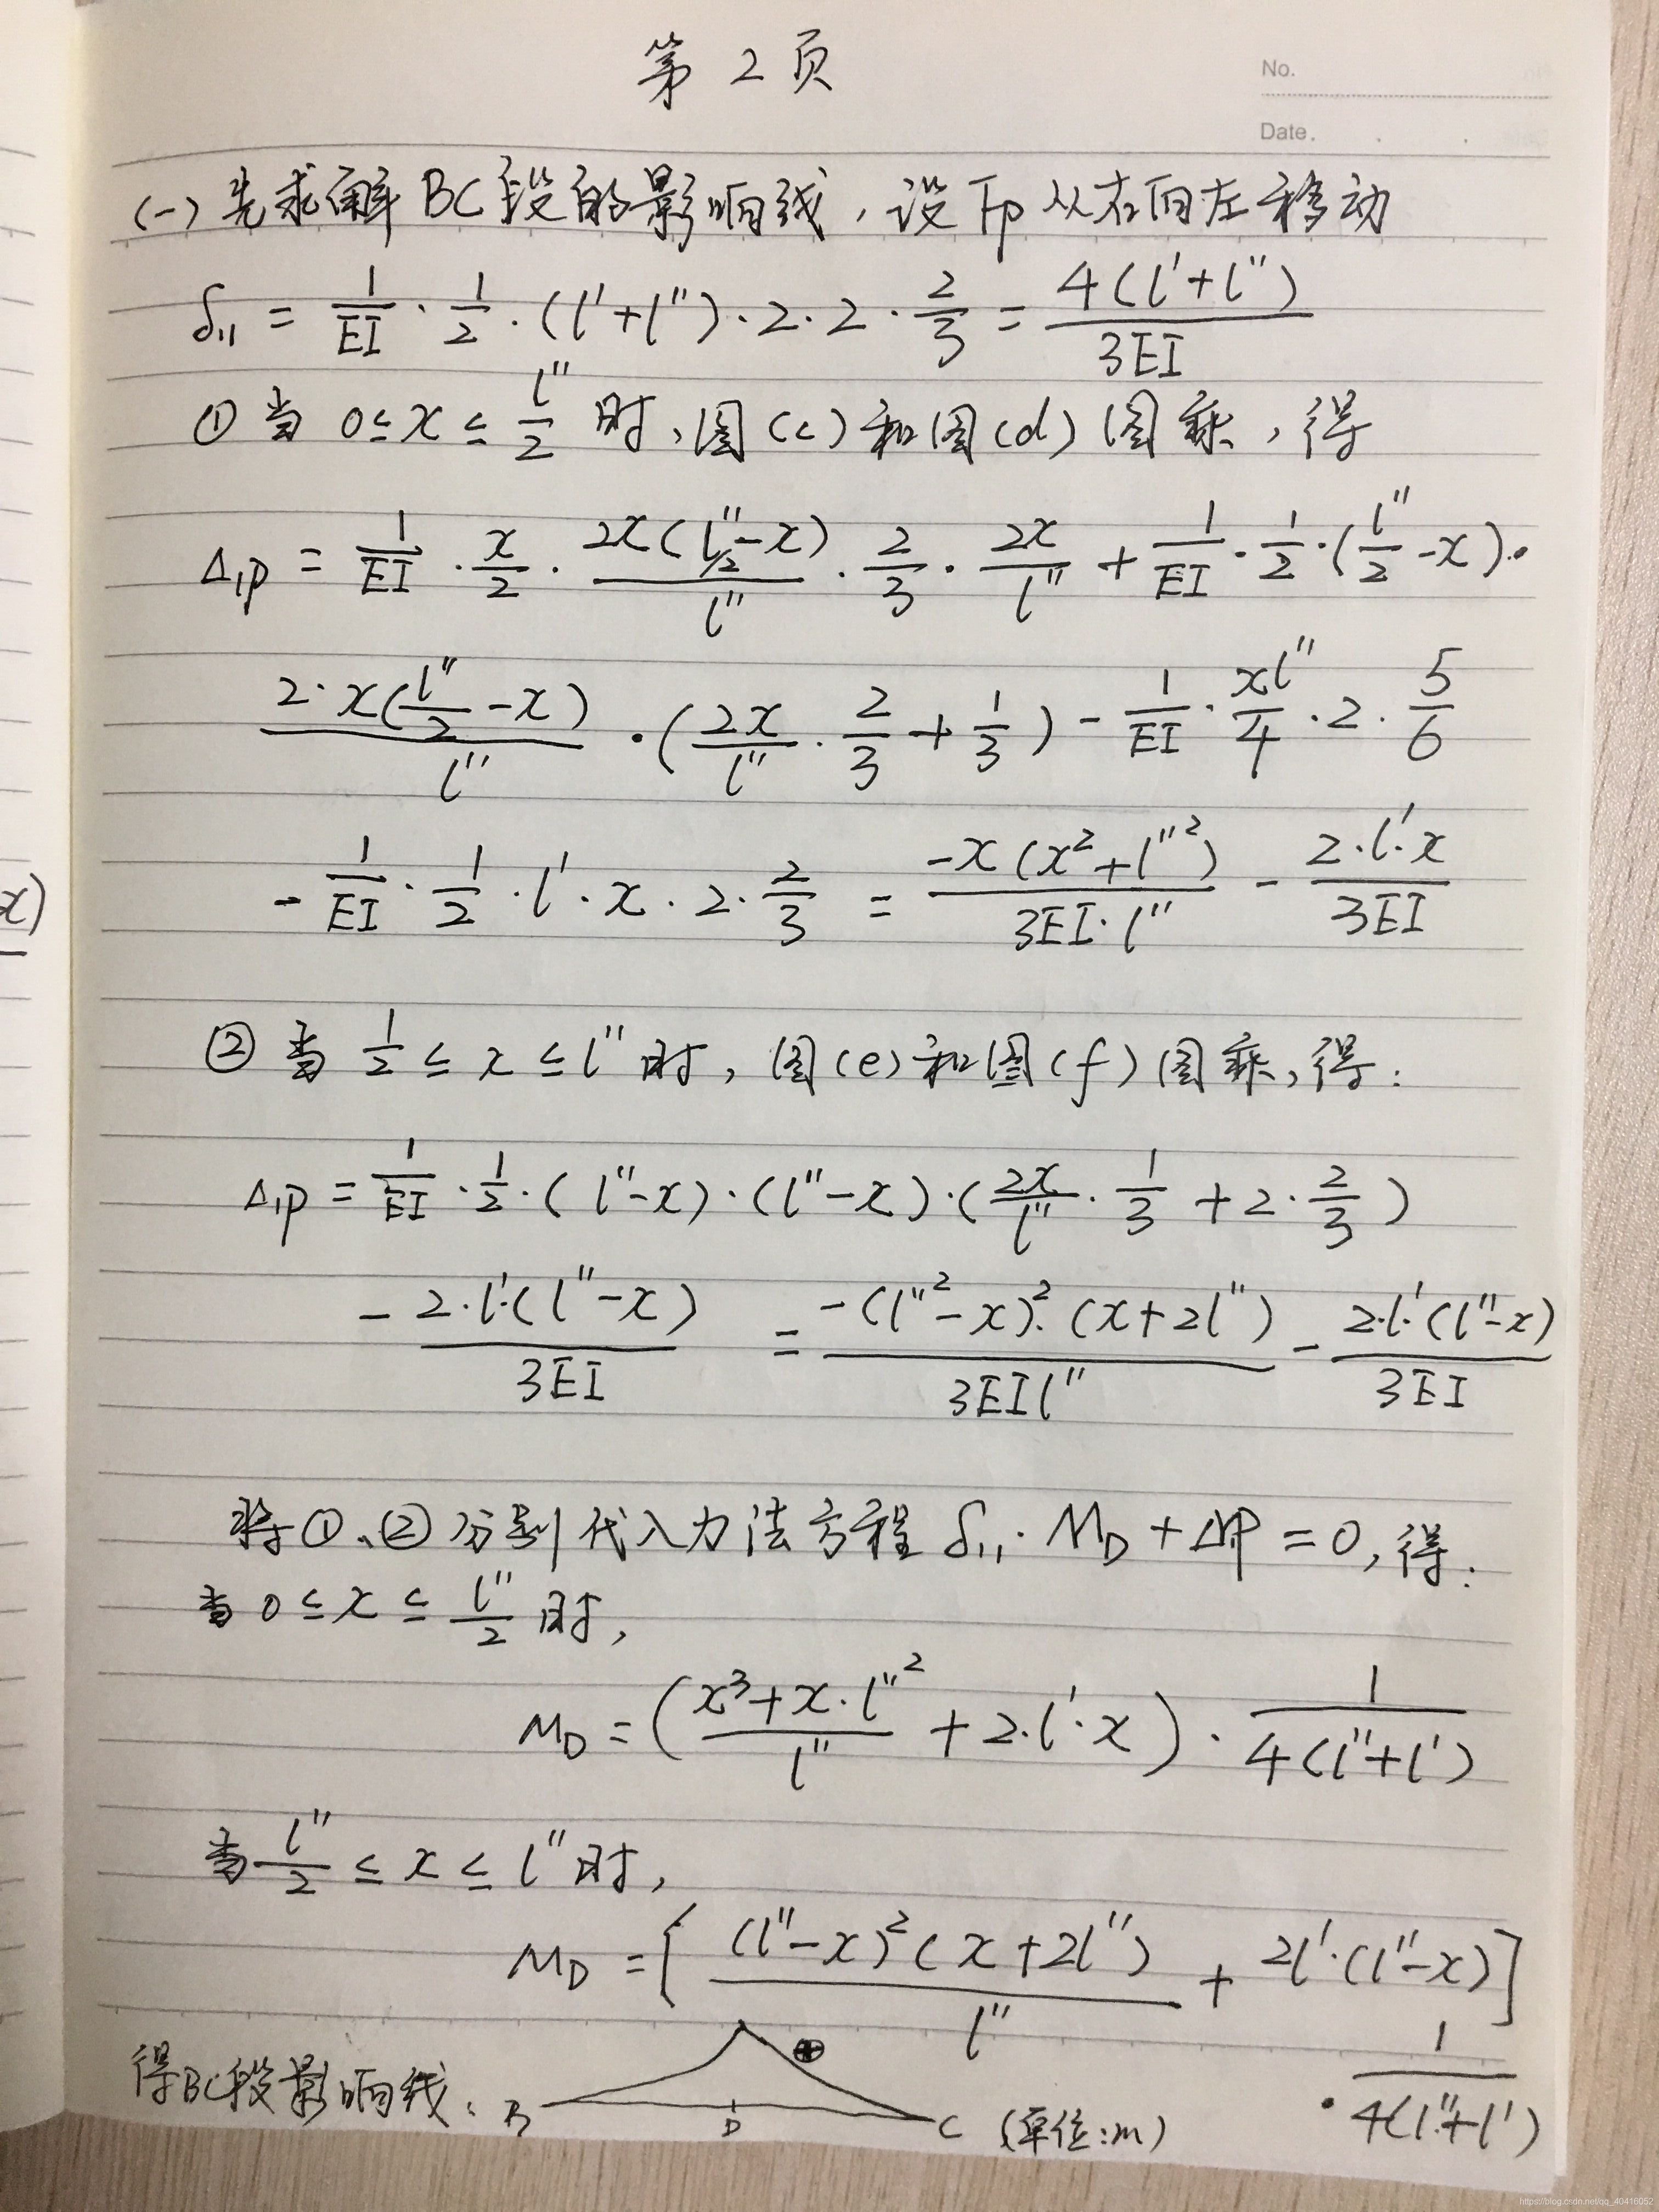 第 2 页
No.
Date.
(一) 先求解 BC 段的影响线，设 Fp 从右向左移动
δ₁₁ = 1/EI · 1/2 · (l'+l'') · 2 · 2 · 2/3 = 4(l'+l'')/3EI
① 当 0≤x≤l''/2 时，图(c)和图(d)图乘，得
Δ₁p = 1/EI · x/2 · 2x(l''/2-x)/l'' · 2/3 · 2x/l'' + 1/EI · 1/2 · (l''/2-x) ·
2·x(l''/2-x)/l'' · (2x/l'' · 2/3 + 1/3) - 1/EI · xl''/4 · 2 · 5/6
x)
- 1/EI · 1/2 · l' · x · 2 · 2/3 = -x(x²+l''²)/3EI·l'' - 2·l'·x/3EI
② 当 1/2 ≤ x ≤ l'' 时，图(e)和图(f)图乘，得：
Δ₁p = 1/EI · 1/2 · (l''-x) · (l''-x) · (2x/l'' · 1/3 + 2 · 2/3)
- 2·l'·(l''-x)/3EI = -(l''²-x)²·(x+2l'')/3EIl'' - 2·l'·(l''-x)/3EI
将①、②分别代入力法方程 δ₁₁·M_D + Δ₁p = 0，得：
当 0≤x≤l''/2 时，
M_D = (x³+x·l''²/l'' + 2·l'·x) · 1/4(l''+l')
当 l''/2 ≤ x ≤ l'' 时，
M_D = [(l''-x)²(x+2l'')/l'' + 2l'·(l''-x)]
· 1/4(l''+l')
得BC段影响线： B D C ⊕ (单位:m)
https://blog.csdn.net/qq_40416052